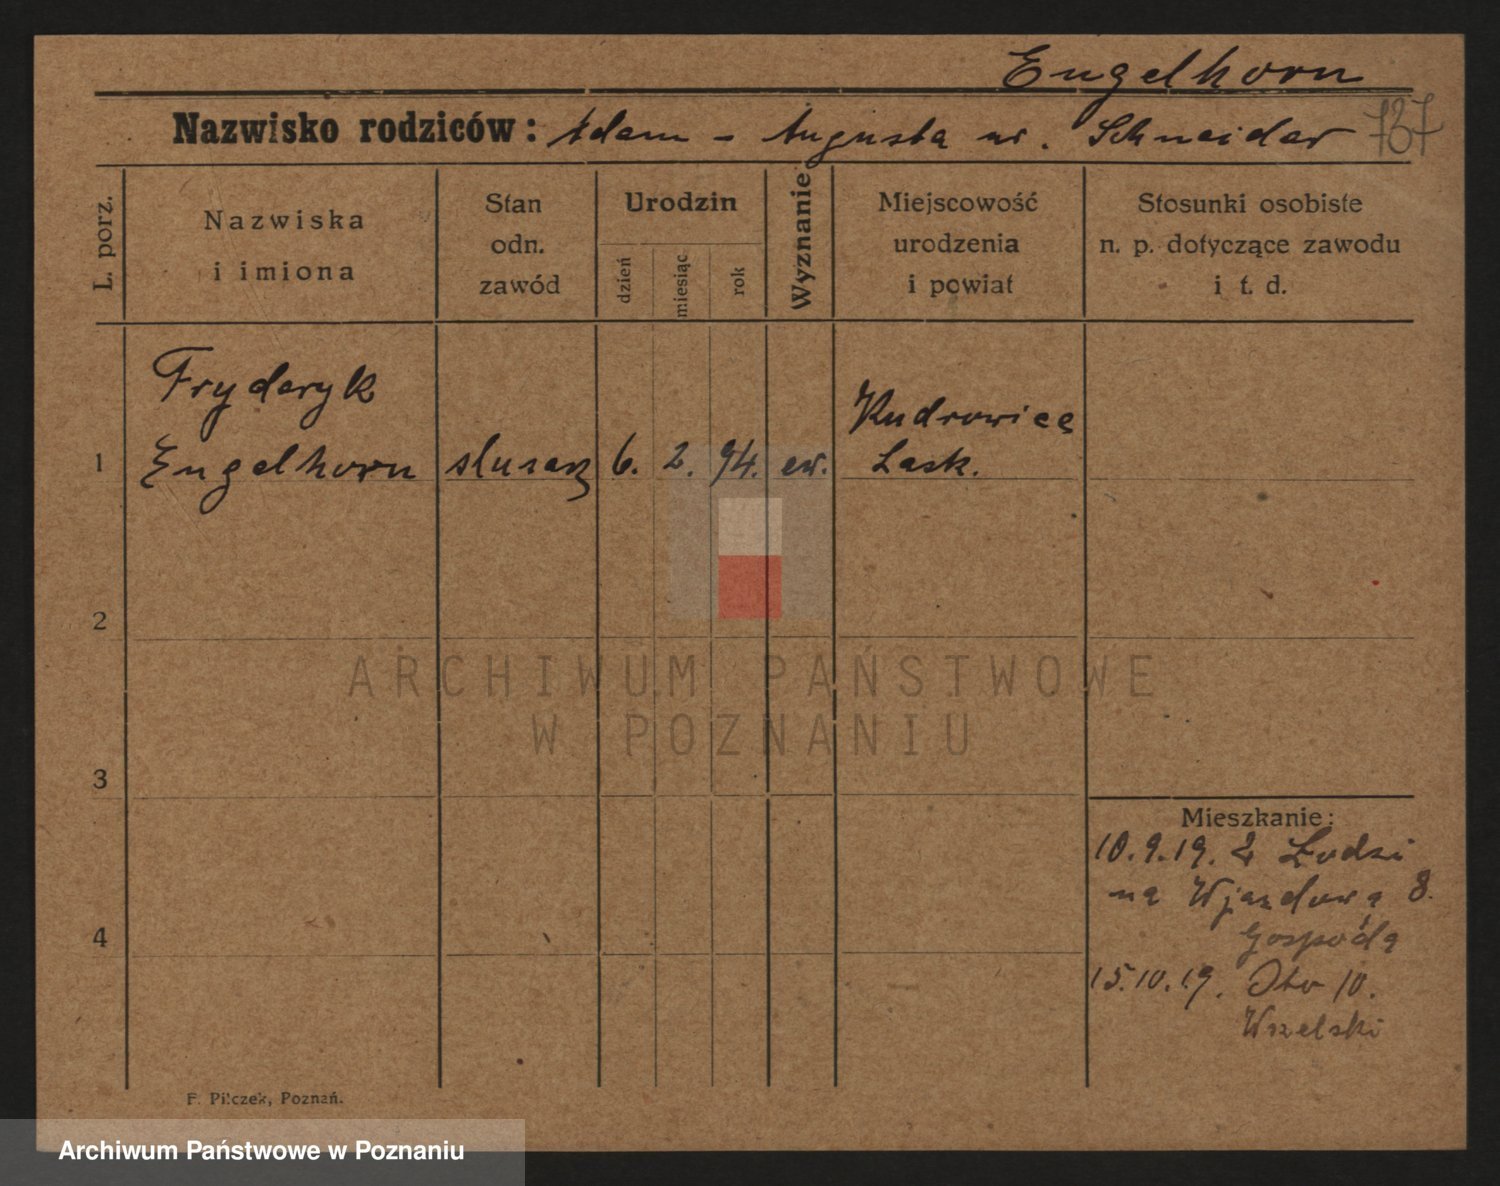 Engelhorn
Nazwisko rodziców: Adam - Augusta ur. Schneider 787
L. porz.
Nazwiska
i imiona
Stan
odn.
zawód
Urodzin
dzień
miesiąc
rok
Wyznanie
Miejscowość
urodzenia
i powiat
Stosunki osobiste
n. p. dotyczące zawodu
i t. d.
Fryderyk
Kudrowice
1 Engelhorn slusarz 6. 2. 94. ew. Lask.
2
ARCHIWUM PAŃSTWOWE
W POZNANIU
3
Mieszkanie:
10.9.19. z Łodzi
na Wjazdową 8.
Gospoda
4
15.10.19. 10.
F. Pilczek, Poznań.
Archiwum Państwowe w Poznaniu